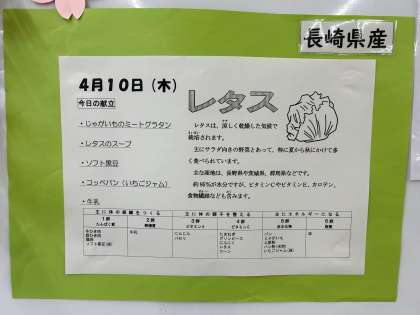 長崎県産
4月10日（木）
今日の献立
・じゃがいものミートグラタン
・レタスのスープ
・ソフト黒豆
・コッペパン（いちごジャム）
・牛乳
レタス
レタスは、涼しく乾燥した気候で
栽培されます。
主にサラダ向きの野菜とあって、特に夏から秋にかけて多
く食べられています。
主な産地は、長野県や茨城県、群馬県などです。
約95%が水分ですが、ビタミンCやビタミンE、カロテン、
食物繊維なども含みます。
主に体の組織をつくる
主に体の調子を整える
主にエネルギーになる
1群 2群 3群 4群 5群 6群
牛乳
にんじん
パセリ
たまねぎ
グリンピース
にんにく
レタス
コーン
パン
じゃがいも